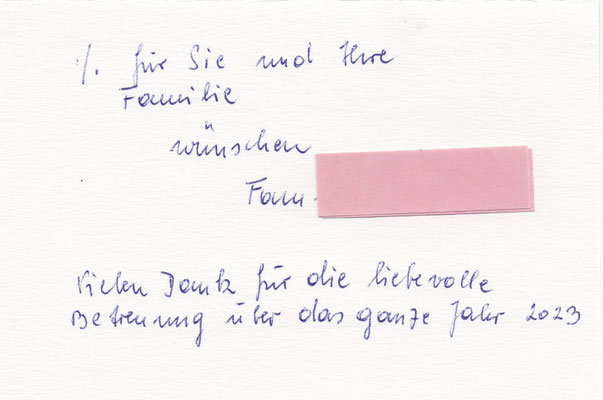 ./. für Sie und Ihre
Familie
wünschen
Fam.
Vielen Dank für die liebevolle
Betreuung über das ganze Jahr 2023